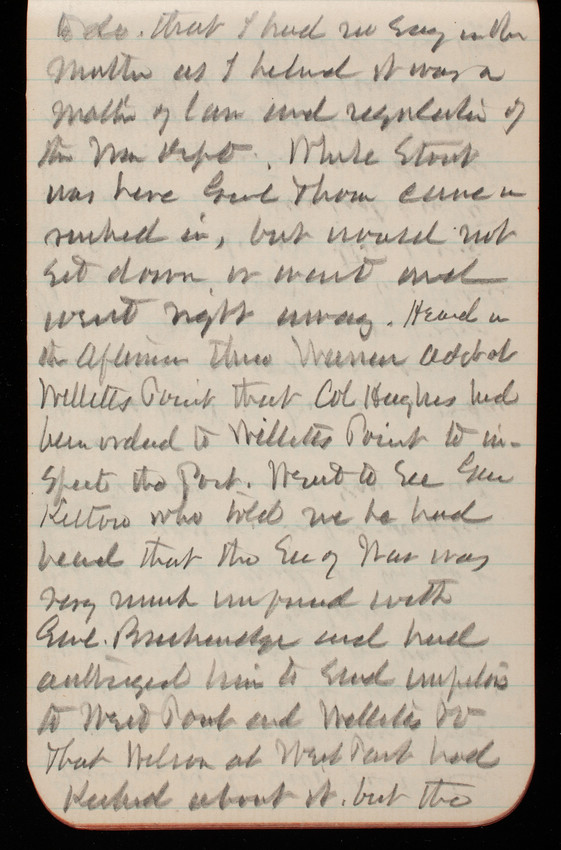 to do. that I had no say in the
matter as I believed it was a
matter of law and regulation of
the War Dept. While Stout
was here Genl Thom came in
rushed in, but would not
set down or wait and
went right away. Heard in
the afternoon thro Warren adjt at
Willetts Point that Col Hughes had
been ordered to Willetts Point to in-
spect the Post. Went to see Gen
Kelton who told me he had
heard that the Sec of War was
very much with
Genl. Breckenridge and had
authorized him to send inspectors
to West Point and Willetts Pt
That Wilson at West Point had
kicked about it, but the